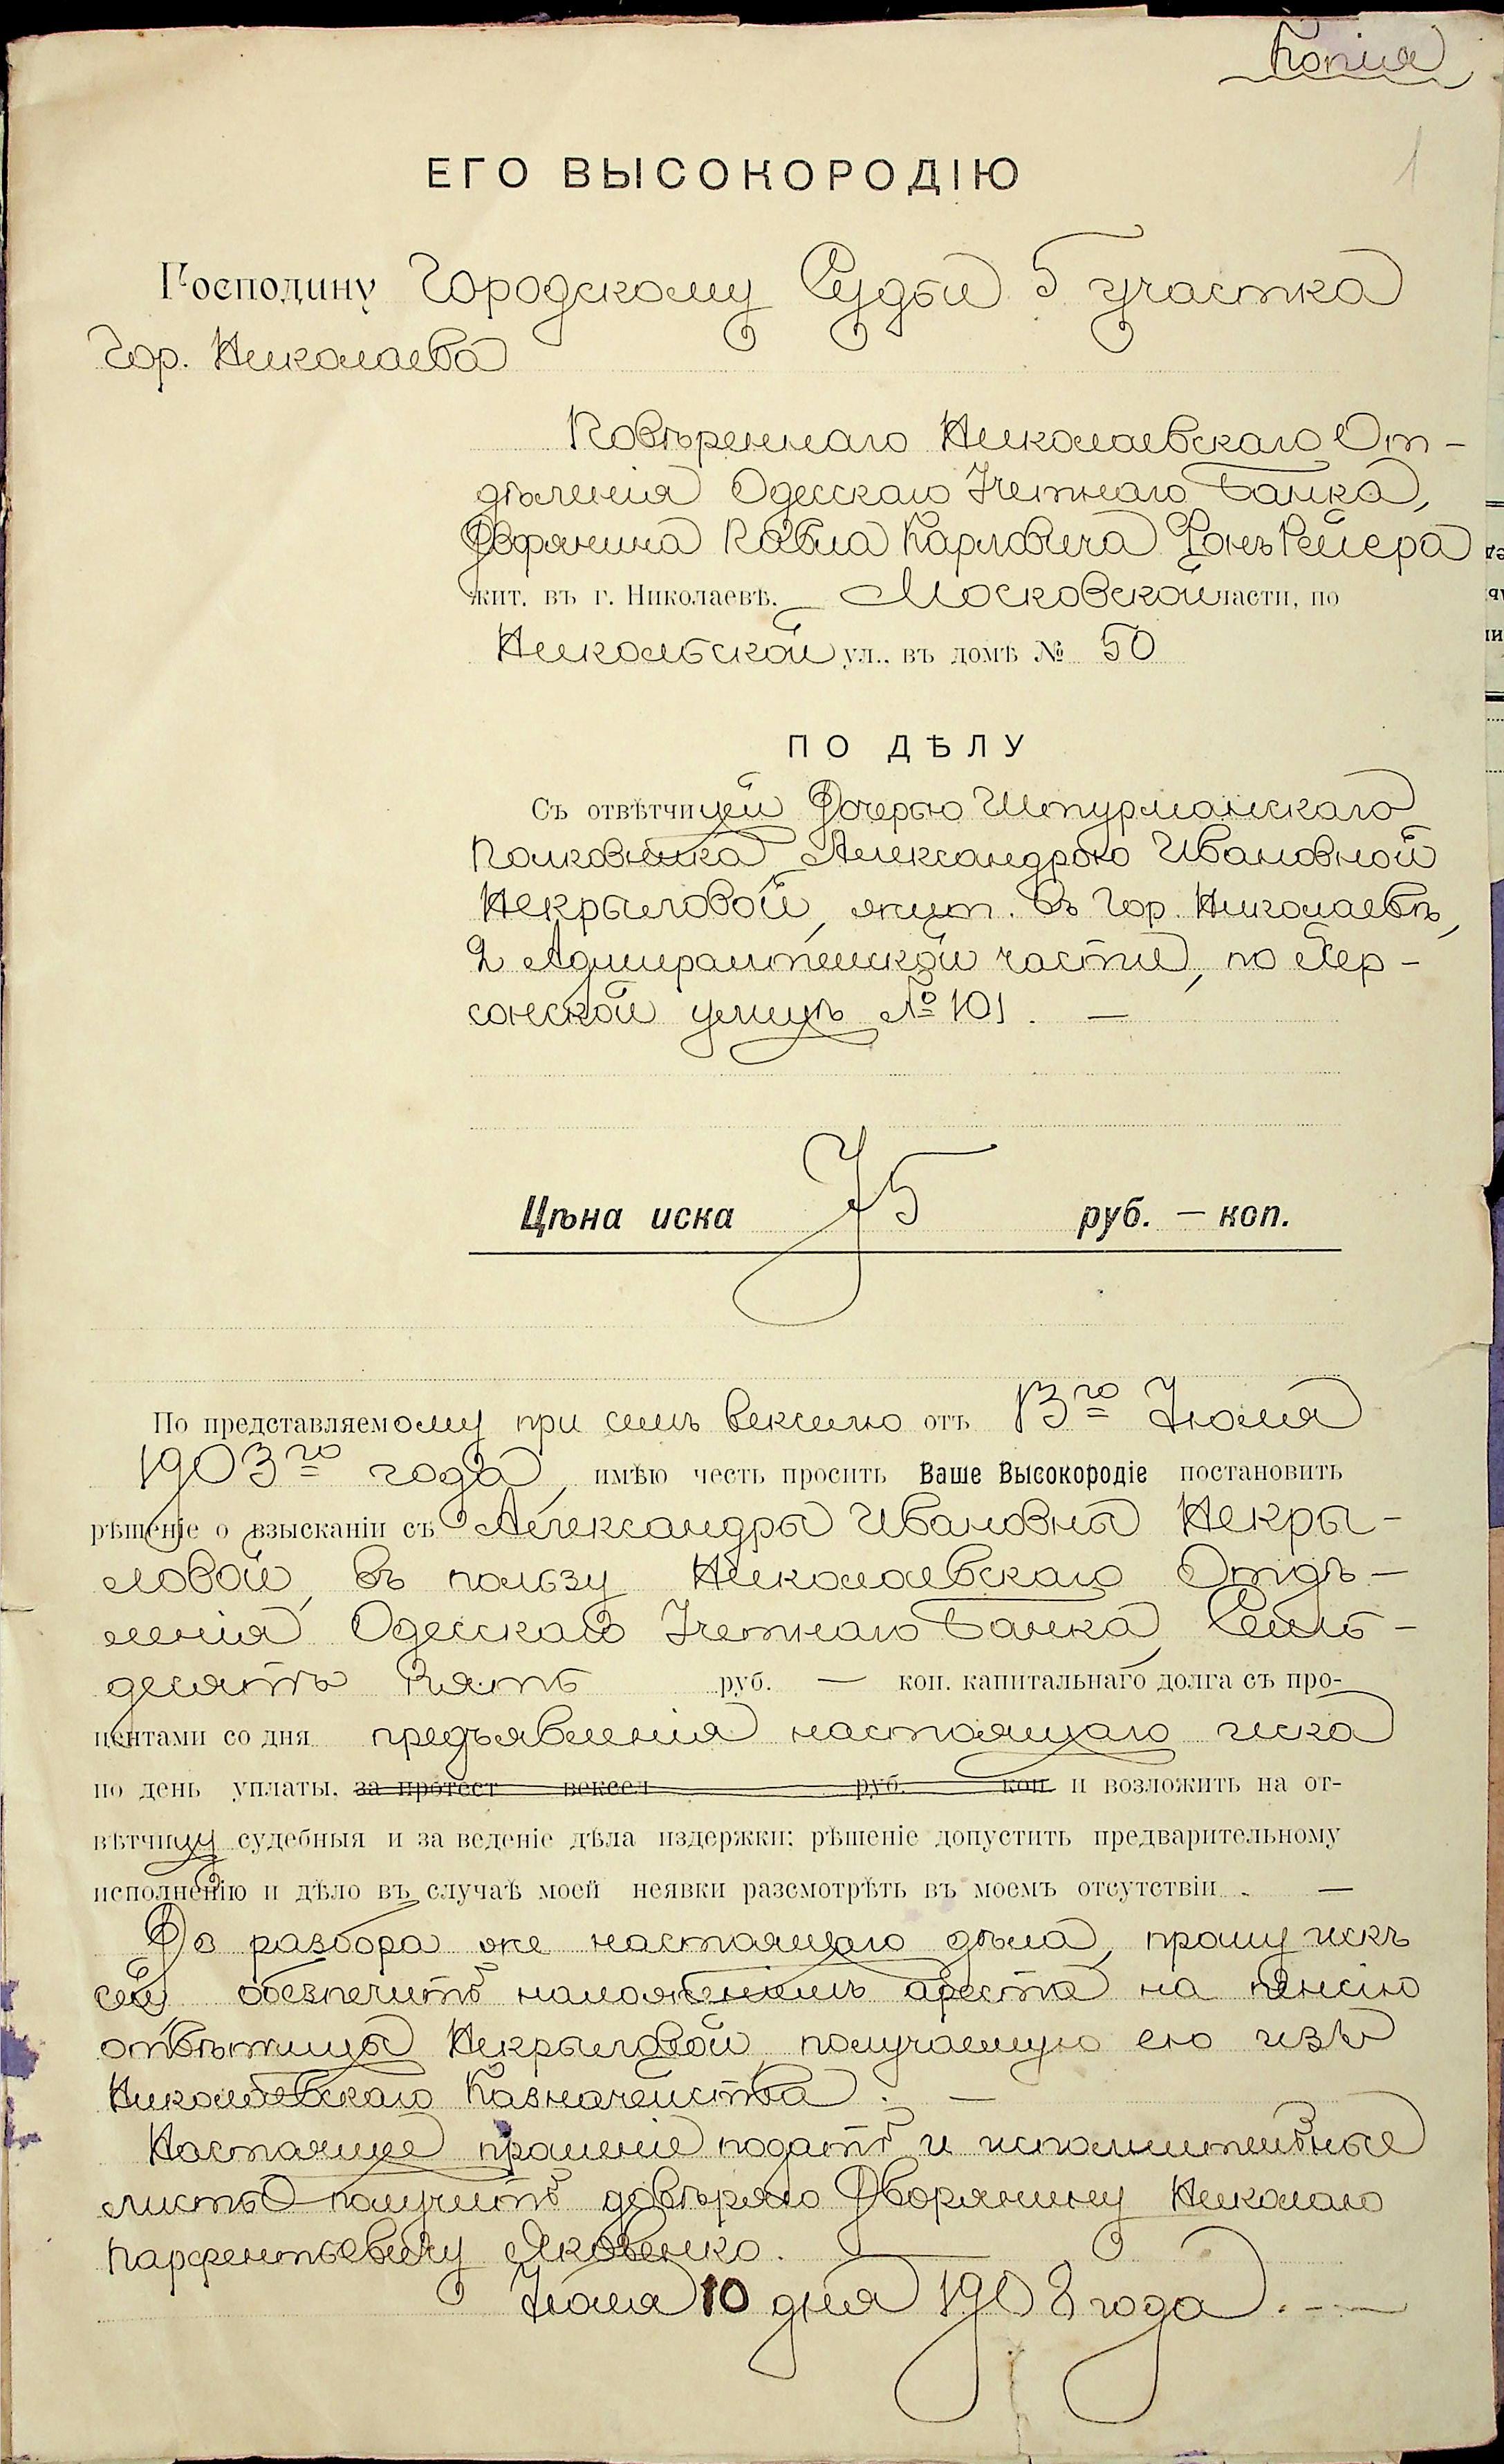 Копія
1
ЕГО ВЫСОКОРОДІЮ
Господину Городскому Судьи 5 участка
Гор. Николаева
Повѣреннаго Николаевскаго От-
дѣленія Одесскаго Учетнаго Банка,
Дворянина Павла Карловича Фонъ Рейера
жит. въ г. Николаевѣ. Московской части, по
Никольской ул., въ домѣ № 50
ПО ДѢЛУ
Съ отвѣтчицей Дочерью Штурманскаго
Полковника Александрою Ивановной
Некрыловой, жит. въ Гор. Николаевѣ,
2 Адмиралтейской части, по Хер-
сонской улицѣ № 101. —
Цѣна иска 75 руб. — коп.
По представляемому при семъ векселю отъ 13го Іюля
1903го года, имѣю честь просить Ваше Высокородіе постановить
рѣшеніе о взысканіи съ Александры Ивановны Некры-
ловой, въ пользу Николаевскаго Отдѣ-
ленія Одесскаго Учетнаго Банка, Семь-
десятъ пять руб. — коп. капитальнаго долга съ про-
центами со дня предъявленія настоящаго иска
по день уплаты, за протест вексел руб. коп. и возложить на от-
вѣтчицу судебныя и за веденіе дѣла издержки; рѣшеніе допустить предварительному
исполненію и дѣло въ случаѣ моей неявки разсмотрѣть въ моемъ отсутствіи. —
До разбора же настоящаго дѣла, прошу искъ
сей обезпечить наложеніемъ ареста на пенсію
отвѣтчицы Некрыловой, получаемую ею изъ
Николаевскаго Казначейства. —
Настоящее прошеніе подать и исполнительные
листы получить довѣряю Дворянину Николаю
Парфентьевичу Яковенко.
Іюля 10 дня 1908 года. —